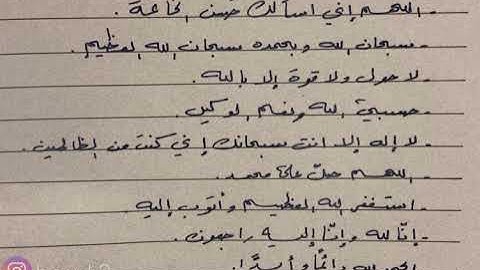 - اللهم إني أسألك حسن الخاتمة.
- سبحان الله وبحمده سبحان الله العظيم.
- لا حول ولا قوة إلا بالله.
- حسبي الله ونعم الوكيل.
- لا إله إلا انت سبحانك إني كنت من الظالمين.
- اللهم صل على محمد.
- استغفر الله العظيم وأتوب إليه.
- إنا لله وإنا إليه راجعون.
الحمد لله دائمًا وأبدًا.